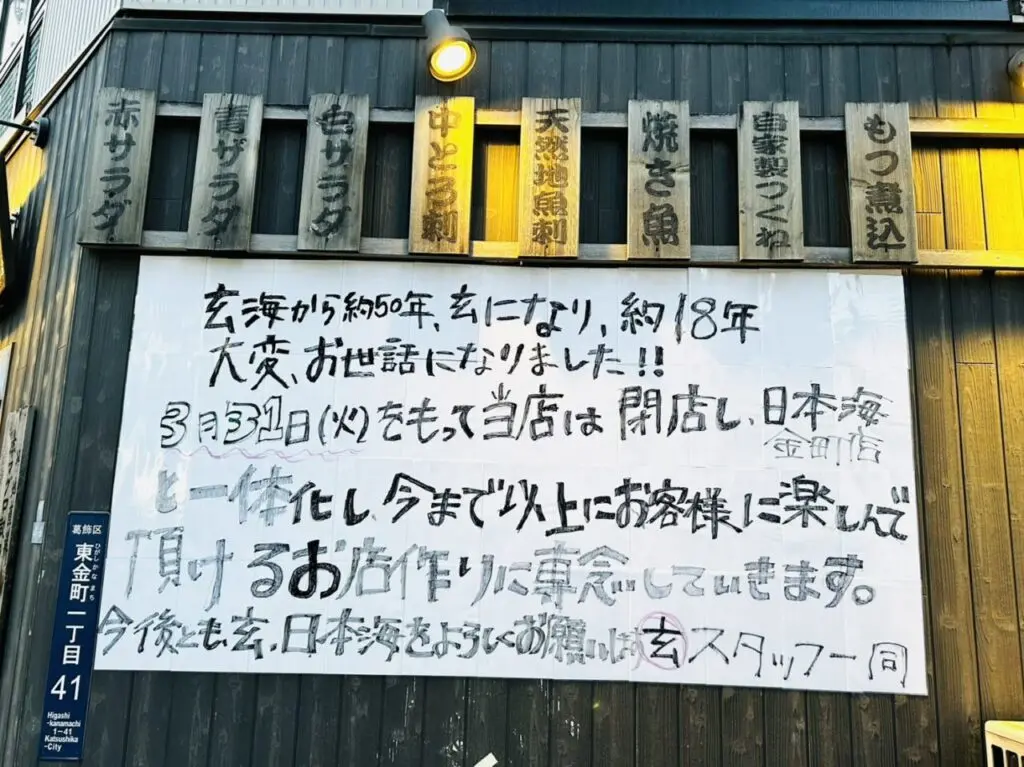 赤サラダ
青ザラダ
白サラダ
中とろ刺
天然地魚刺
焼き魚
自家製つくね
もつ煮込
玄海から約50年、玄になり、約18年
大変、お世話になりました!!
3月31日(火)をもって当店は閉店し、日本海
金町店
と一体化し、今まで以上にお客様に楽しんで
頂けるお店作りに専念していきます。
今後とも玄、日本海をよろしくお願いします 玄スタッフ一同
葛飾区
ひがしかなまち
東金町
一丁目
41
Higashi
-kanamachi
1-41
Katsushika
-City